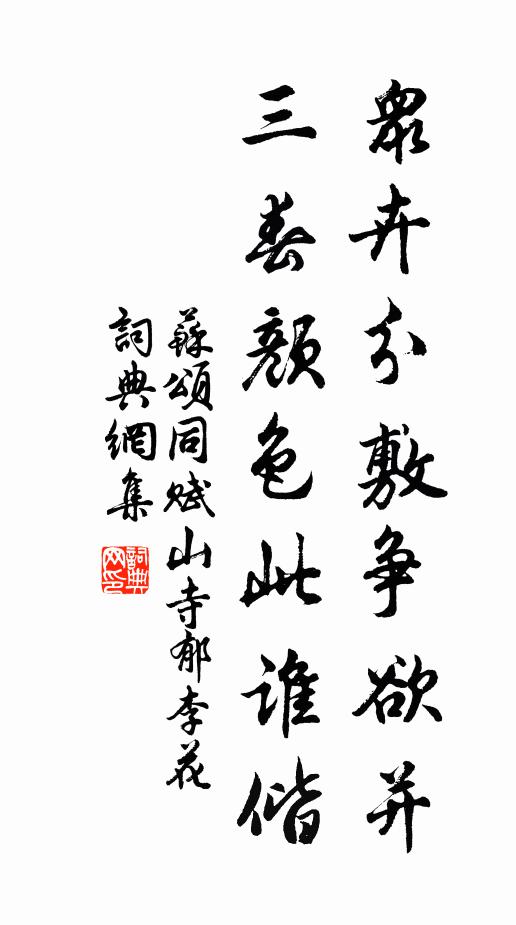 眾卉分敷爭欲并
三春顏色此誰偕
蘇頌同賦山寺郁李花
詞典網集
詞典网印